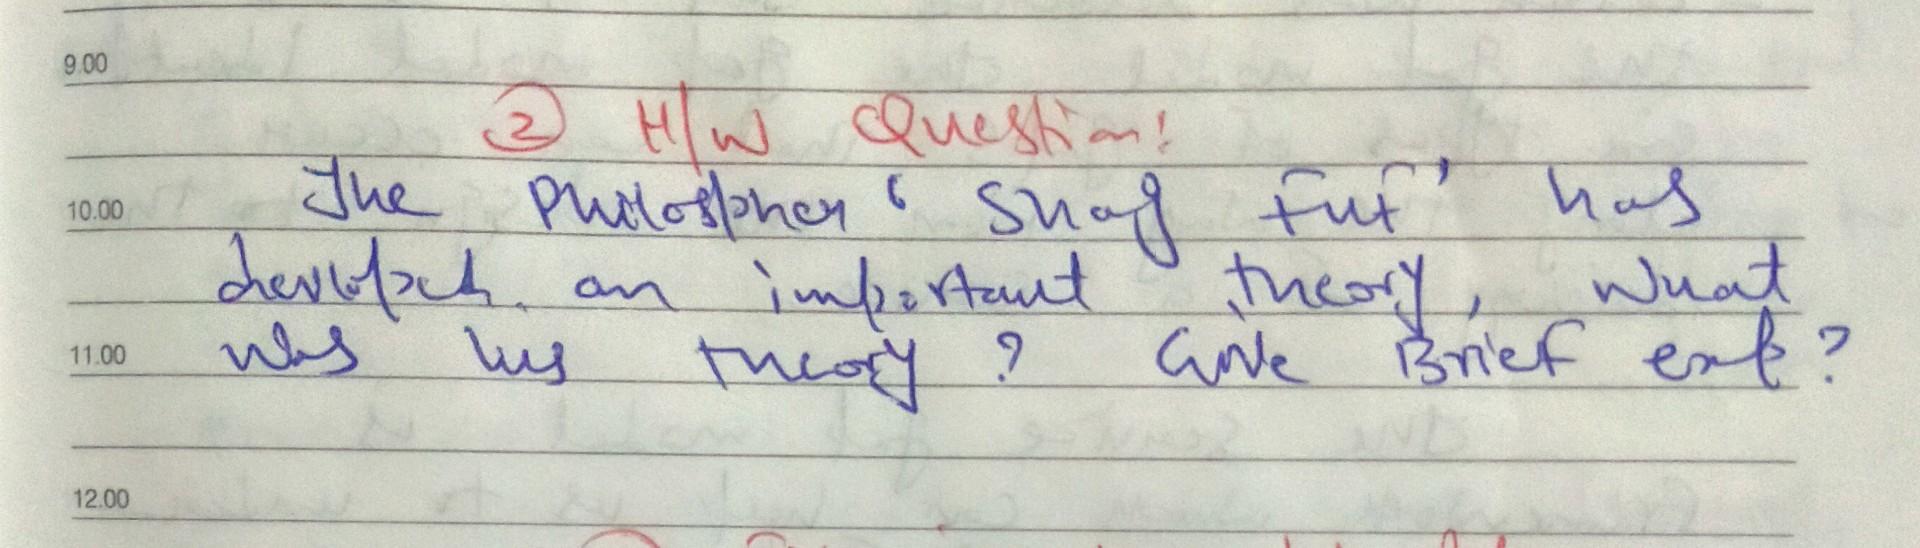 9.00
② H/W Question!
10.00 The Philospher ' Shaf Fut' has
devloped. an important theory, What
11.00 was his theory ? Give Brief exp?
12.00